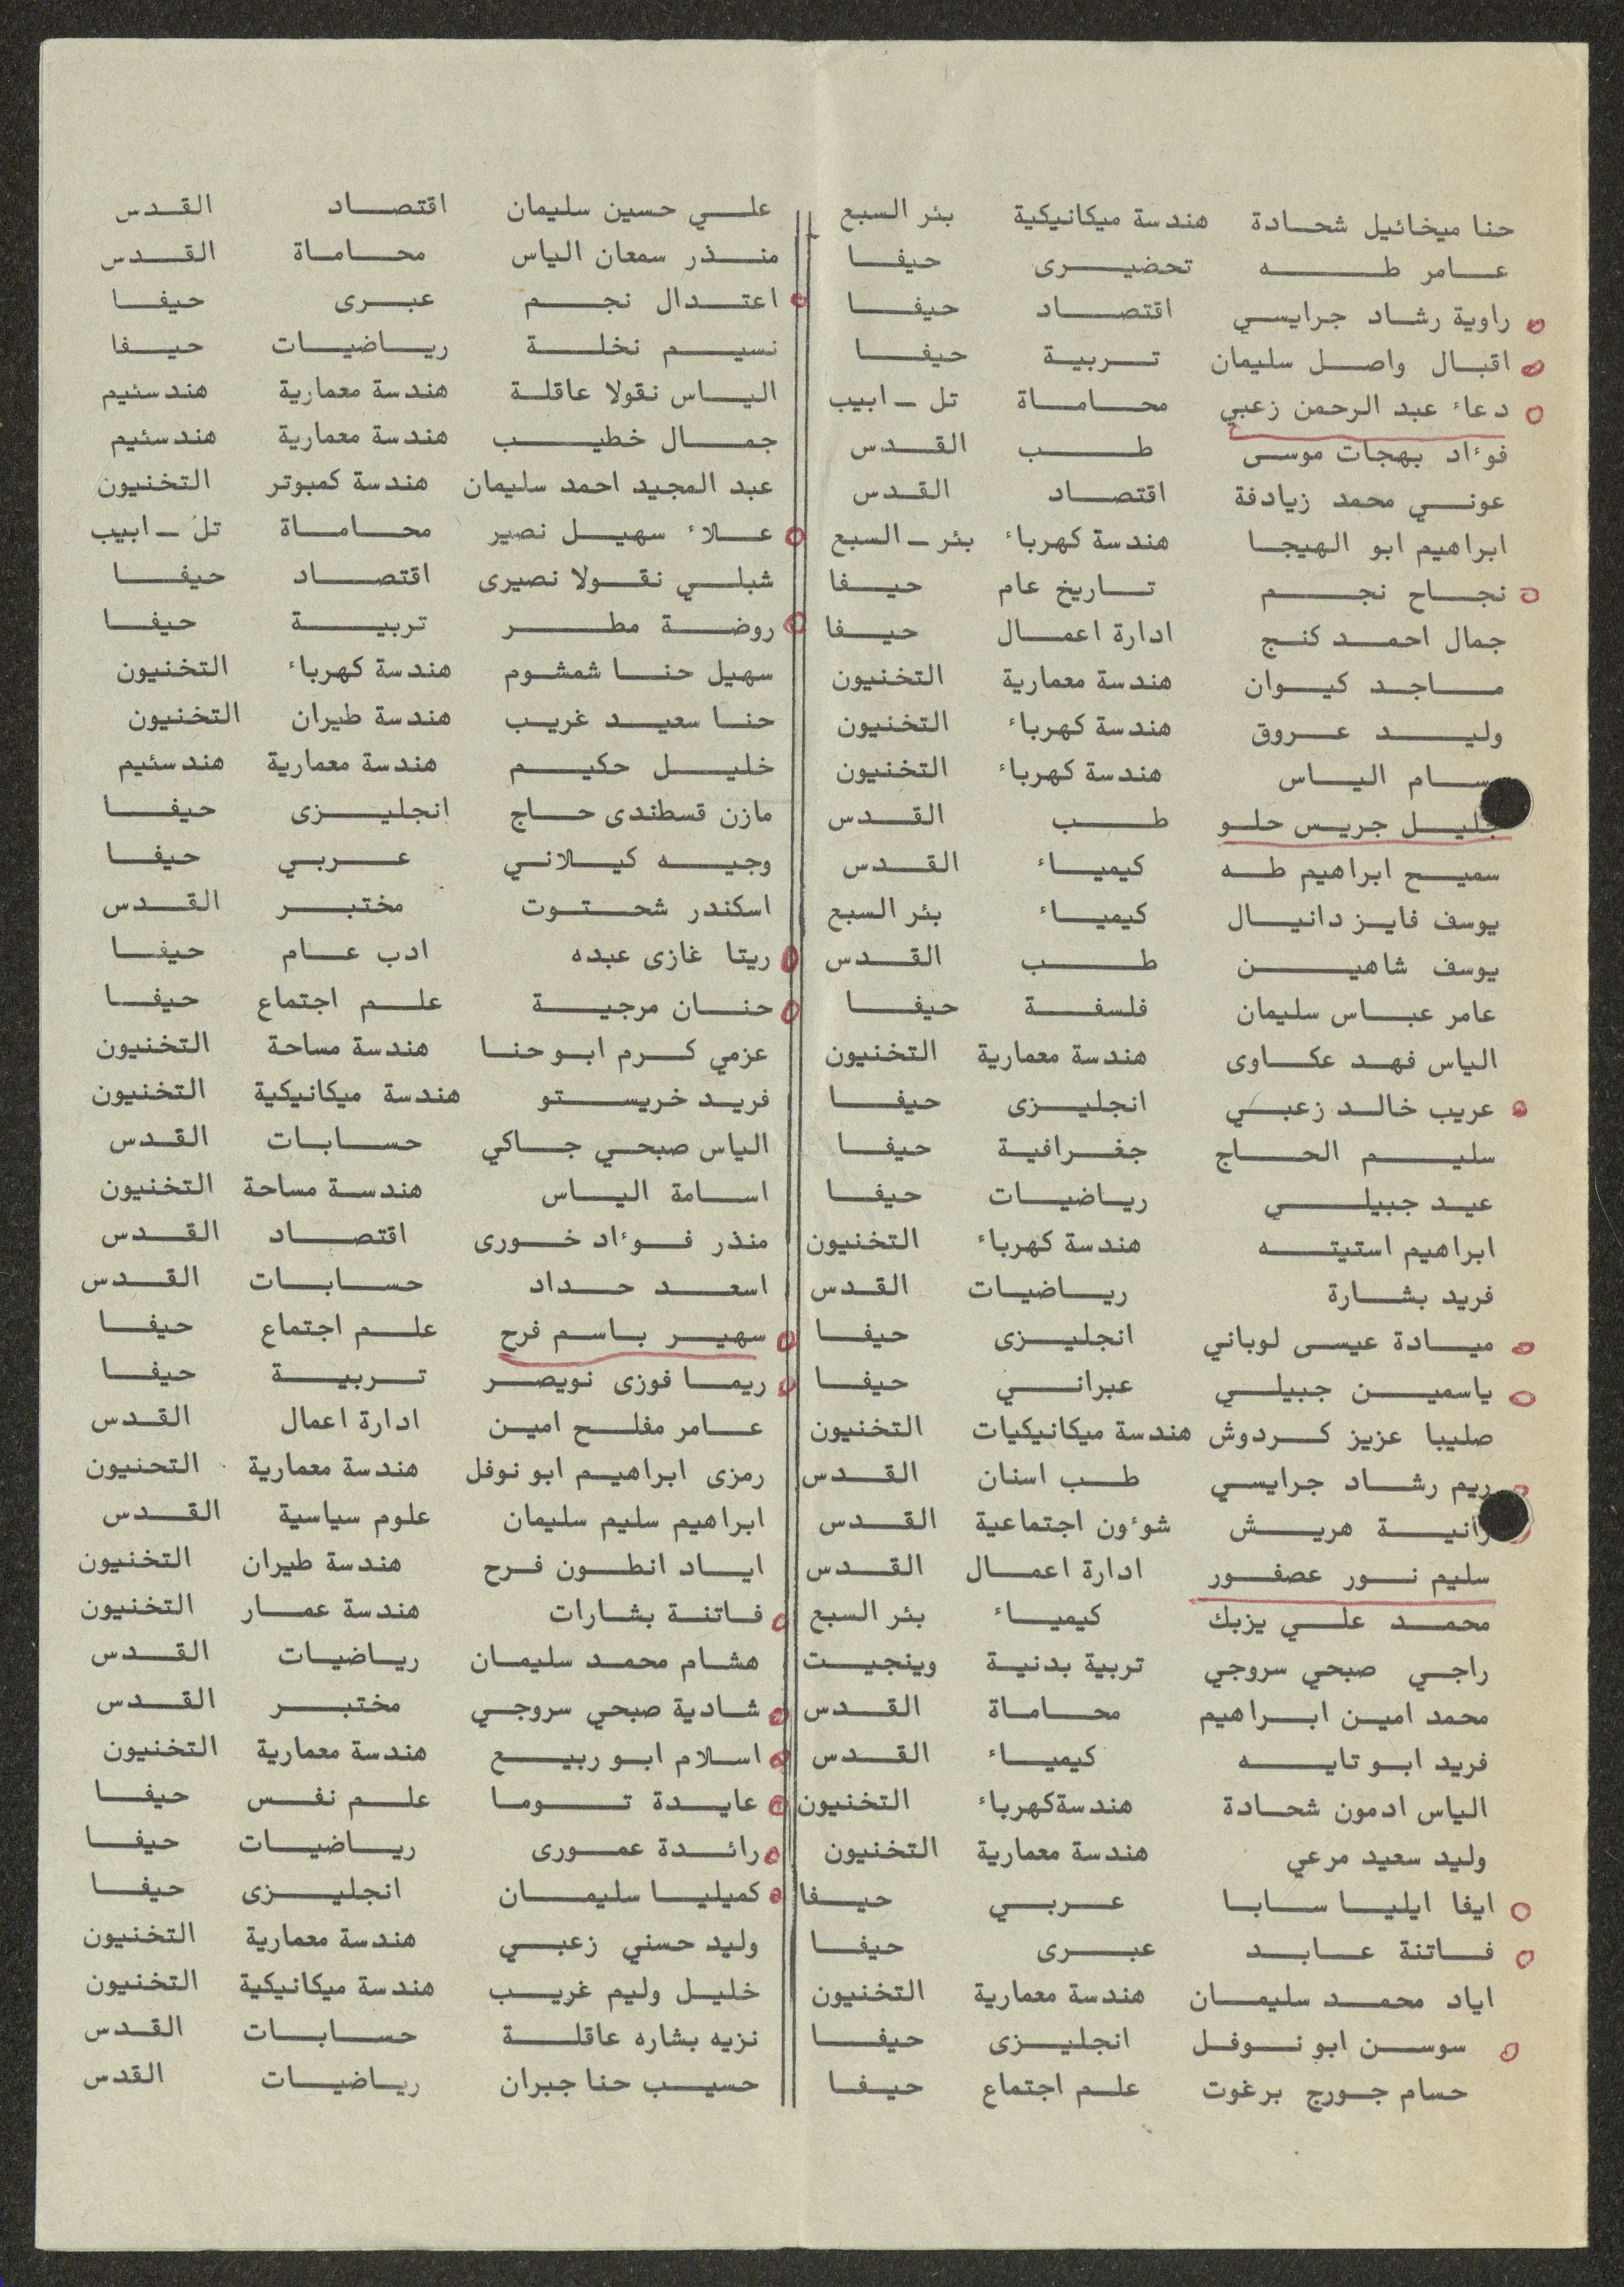 حنا ميخائيل شحادة هندسة ميكانيكية بئر السبع
عامر طه تحضيرى حيفا
راوية رشاد جرايسي اقتصاد حيفا
اقبال واصل سليمان تربية حيفا
دعاء عبد الرحمن زعبي محاماة تل - ابيب
فوءاد بهجات موسى طب القدس
عوني محمد زيادفة اقتصاد القدس
ابراهيم ابو الهيجا هندسة كهرباء بئر - السبع
نجاح نجم تاريخ عام حيفا
جمال احمد كنج ادارة اعمال حيفا
ماجد كيوان هندسة معمارية التخنيون
وليد عروق هندسة كهرباء التخنيون
الياس هندسة كهرباء التخنيون
جليل جريس حلو طب القدس
سميح ابراهيم طه كيمياء القدس
يوسف فايز دانيال كيمياء بئر السبع
يوسف شاهين طب القدس
عامر عباس سليمان فلسفة حيفا
الياس فهد عكاوى هندسة معمارية التخنيون
عريب خالد زعبي انجليزى حيفا
سليم الحاج جغرافية حيفا
عيد جبيلي رياضيات حيفا
ابراهيم استيته هندسة كهرباء التخنيون
فريد بشارة رياضيات القدس
ميادة عيسى لوباني انجليزى حيفا
ياسمين جبيلي عبراني حيفا
صليبا عزيز كردوش هندسة ميكانيكيات التخنيون
ريم رشاد جرايسي طب اسنان القدس
رانية هريش شوءون اجتماعية القدس
سليم نور عصفور ادارة اعمال القدس
محمد علي يزبك كيمياء بئر السبع
راجي صبحي سروجي تربية بدنية وينجيت
محمد امين ابراهيم محاماة القدس
فريد ابو تايه كيمياء القدس
الياس ادمون شحادة هندسةكهرباء التخنيون
وليد سعيد مرعي هندسة معمارية التخنيون
ايفا ايليا سابا عربي حيفا
فاتنة عابد عبرى حيفا
اياد محمد سليمان هندسة معمارية التخنيون
سوسن ابو نوفل انجليزى حيفا
حسام جورج برغوت علم اجتماع حيفا
علي حسين سليمان اقتصاد القدس
منذر سمعان الياس محاماة القدس
اعتدال نجم عبرى حيفا
نسيم نخلة رياضيات حيفا
الياس نقولا عاقلة هندسة معمارية هندسئيم
جمال خطيب هندسة معمارية هندسئيم
عبد المجيد احمد سليمان هندسة كمبوتر التخنيون
علاء سهيل نصير محاماة تل - ابيب
شبلي نقولا نصيرى اقتصاد حيفا
روضة مطر تربية حيفا
سهيل حنا شمشوم هندسة كهرباء التخنيون
حنا سعيد غريب هندسة طيران التخنيون
خليل حكيم هندسة معمارية هندسئيم
مازن قسطندى حاج انجليزى حيفا
وجيه كيلاني عربي حيفا
اسكندر شحتوت مختبر القدس
ريتا غازى عبده ادب عام حيفا
حنان مرجية علم اجتماع حيفا
عزمي كرم ابو حنا هندسة مساحة التخنيون
فريد خريستو هندسة ميكانيكية التخنيون
الياس صبحي جاكي حسابات القدس
اسامة الياس هندسة مساحة التخنيون
منذر فوءاد خورى اقتصاد القدس
اسعد حداد حسابات القدس
سهير باسم فرح علم اجتماع حيفا
ريما فوزى نويصر تربية حيفا
عامر مفلح امين ادارة اعمال القدس
رمزى ابراهيم ابو نوفل هندسة معمارية التحنيون
ابراهيم سليم سليمان علوم سياسية القدس
اياد انطون فرح هندسة طيران التخنيون
فاتنة بشارات هندسة عمار التخنيون
هشام محمد سليمان رياضيات القدس
شادية صبحي سروجي مختبر القدس
اسلام ابو ربيع هندسة معمارية التخنيون
عايدة توما علم نفس حيفا
رائدة عمورى رياضيات حيفا
كميليا سليمان انجليزى حيفا
وليد حسني زعبي هندسة معمارية التخنيون
خليل وليم غريب هندسة ميكانيكية التخنيون
نزيه بشاره عاقلة حسابات القدس
حسيب حنا جبران رياضيات القدس